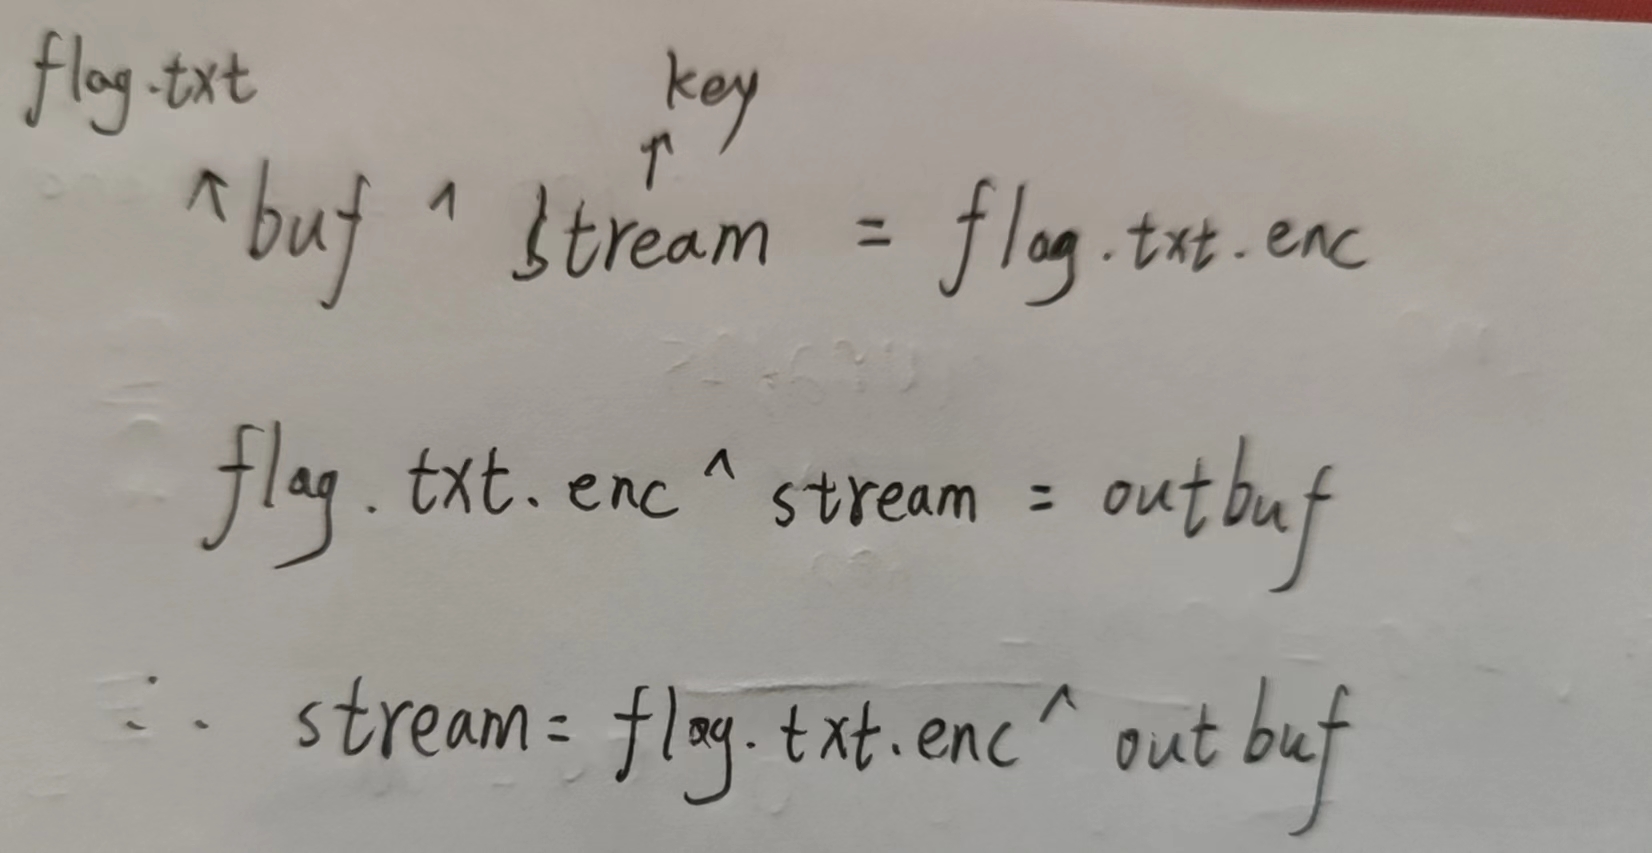 flag.txt
key
↑
^ buf ^ stream = flag.txt.enc
flag.txt.enc ^ stream = outbuf
∴ stream = flag.txt.enc ^ outbuf